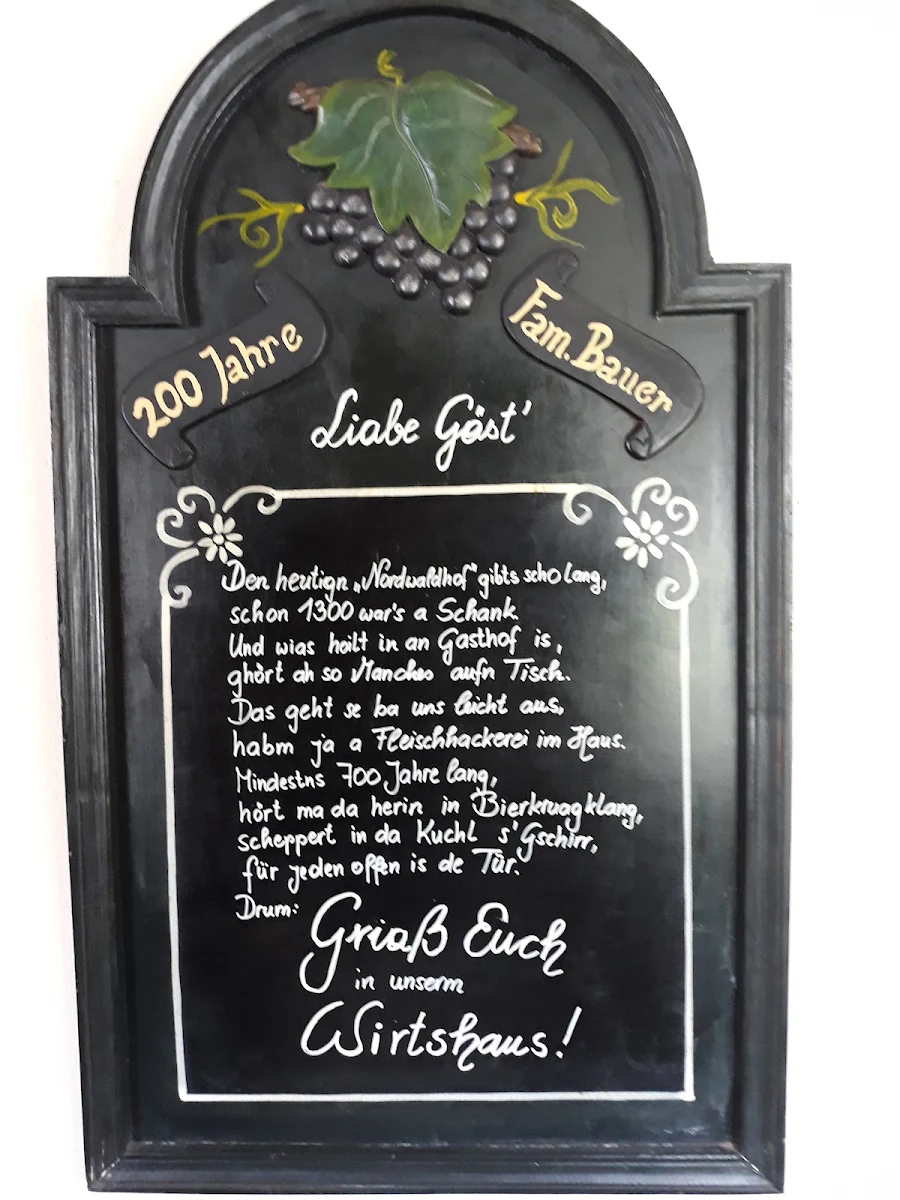 200 Jahre
Fam. Bauer
Liabe Gäst'
Den heutign „Nordwaldhof" gibts scho lang,
schon 1300 war's a Schank.
Und wias hoilt in an Gasthof is,
ghört ah so Manches aufn Tisch.
Das geht se ba uns leicht aus,
habm ja a Fleischhackerei im Haus.
Mindestns 700 Jahre lang,
hört ma da herin in Bierkruag klang,
scheppert in da Kuchl s'Gschirr,
für jeden offen is de Tür.
Drum:
Griaß Euch
in unserm
Wirtshaus!